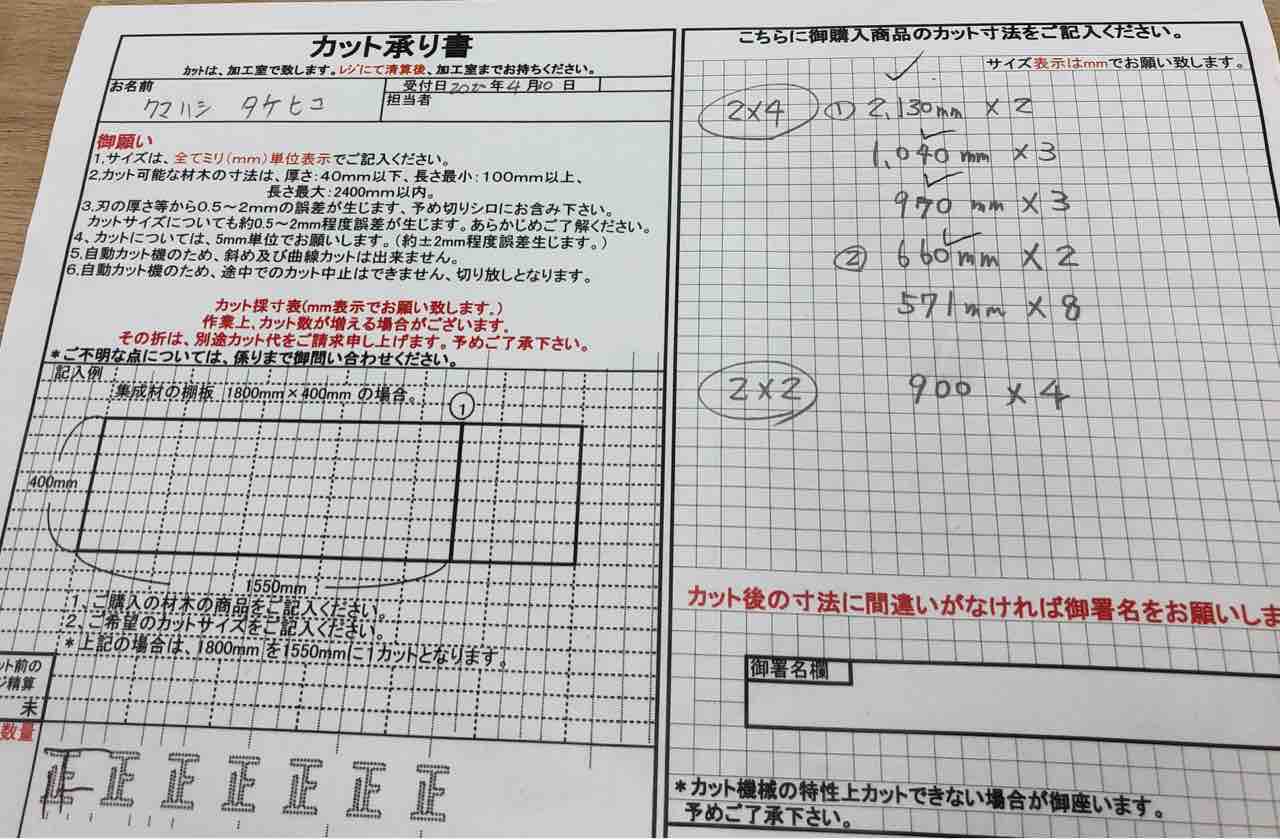 カット承り書
カットは、加工室で致します。レジにて清算後、加工室までお持ちください。
お名前
クマハシ タケヒコ
受付日 年4月10日
担当者
御願い
1,サイズは、全てミリ(mm)単位表示でご記入ください。
2,カット可能な材木の寸法は、厚さ:40mm以下、長さ最小:100mm以上、
長さ最大:2400mm以内。
3,刃の厚さ等から0.5～2mmの誤差が生じます、予め切りシロにお含み下さい。
カットサイズについても約0.5～2mm程度誤差が生じます。あらかじめご了解ください。
4、カットについては、5mm単位でお願いします。(約±2mm程度誤差生じます。)
5.自動カット機のため、斜め及び曲線カットは出来ません。
6.自動カット機のため、途中でのカット中止はできません、切り放しとなります。
カット採寸表(mm表示でお願い致します。)
作業上、カット数が増える場合がございます。
その折は、別途カット代をご請求申し上げます。予めご了承下さい。
*ご不明な点については、係りまで御問い合わせください。
記入例
集成材の棚板 1800mm×400mm の場合。
1
400mm
1550mm
1、ご購入の材木の商品をご記入ください。
2、ご希望のカットサイズをご記入ください。
*上記の場合は、1800mm を1550mmに1カットとなります。
ット前の
ジ精算
未
数量
こちらに御購入商品のカット寸法をご記入ください。
サイズ表示はmmでお願い致します。
2×4 ① 2,130mm × 2
1,040mm × 3
970mm × 3
② 660mm × 2
571mm × 8
2×2 900 × 4
カット後の寸法に間違いがなければ御署名をお願いしま
御署名欄
*カット機械の特性上カットできない場合が御座います。
予めご了承下さい。